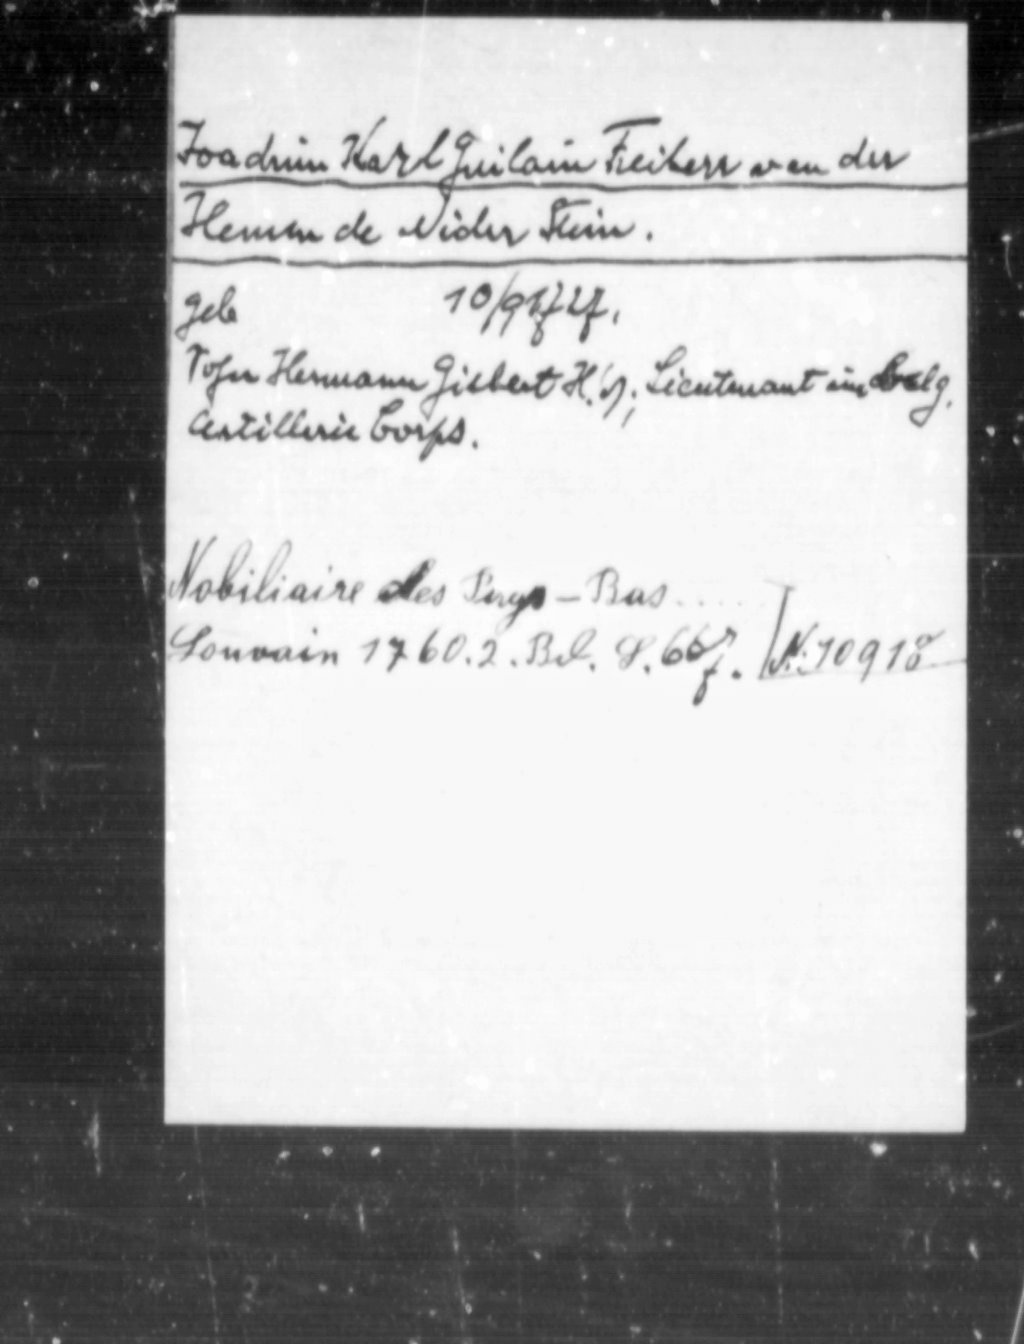 Joachim Karl Guilain Freiherr van der
Hemen de Nider Stein.
geb 10/9 1727.
Hermann Gisbert H. Lieutenant im belg.
Artillerie Corps.
Nobiliaire des Pays-Bas.....
Louvain 1760.2.Bd. S. 667. N:10918